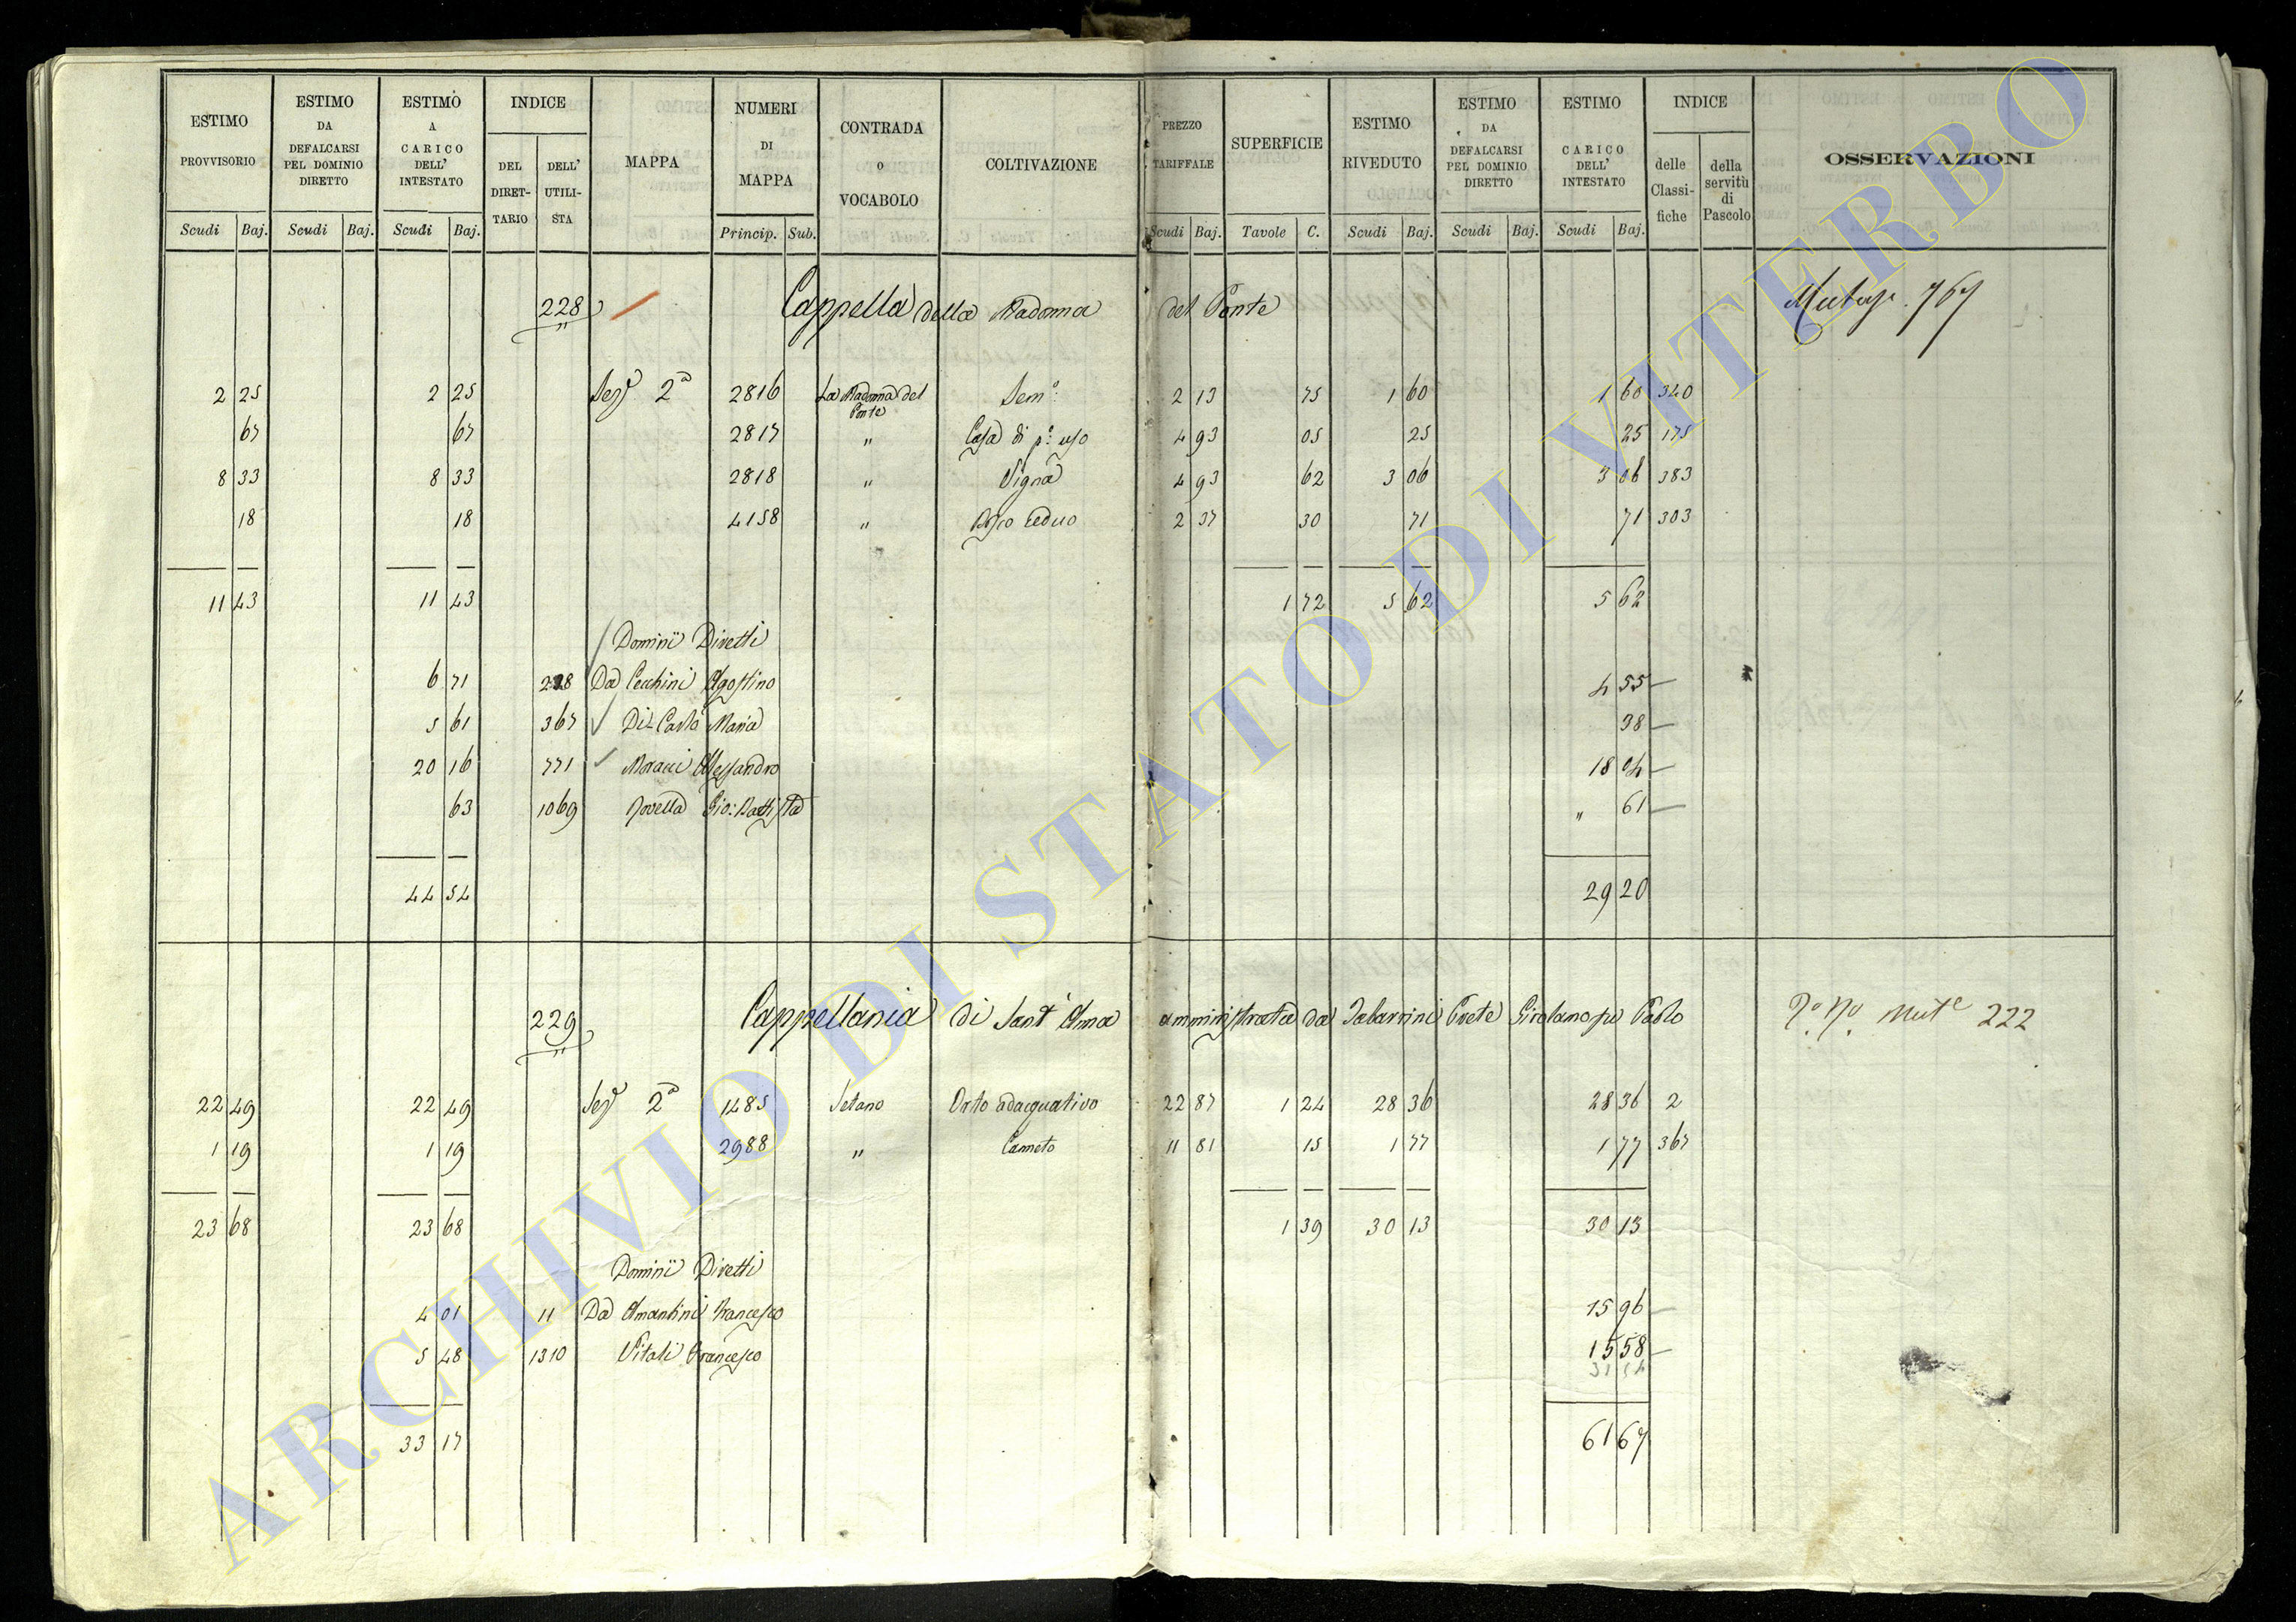 ESTIMO PROVVISORIO | ESTIMO DA DEFALCARSI PEL DOMINIO DIRETTO | ESTIMO A CARICO DELL' INTESTATO | INDICE DEL DIRET-TARIO | DELL' UTILI-STA | MAPPA | NUMERI DI MAPPA | CONTRADA o VOCABOLO | COLTIVAZIONE | PREZZO TARIFFALE | SUPERFICIE | ESTIMO RIVEDUTO | ESTIMO DA DEFALCARSI PEL DOMINIO DIRETTO | ESTIMO A CARICO DELL' INTESTATO | INDICE delle Classi-fiche | della servitù di Pascolo | OSSERVAZIONI
Scudi Baj. | Scudi Baj. | Scudi Baj. | Princip. Sub. | Scudi Baj. | Tavole C. | Scudi Baj. | Scudi Baj. | Scudi Baj.
228 Cappella della Madonna del Ponte 767
2 25 | 2 25 | Sez. 2a | 2816 | La Madonna del Ponte | Sem.o | 2 13 | 75 | 1 60 | 1 60 | 340
67 | 67 | 2817 | " | Casa di p.o uso | 4 93 | 05 | 25 | 25 | 175
8 33 | 8 33 | 2818 | " | Vigna | 4 93 | 62 | 3 06 | 3 06 | 383
18 | 18 | 4158 | " | Bosco Ceduo | 2 37 | 30 | 71 | 71 | 303
11 43 | 11 43 | 1 72 | 5 62 | 5 62
Dominii Diretti
6 71 | Da Cecchini Agostino | 4 55
5 61 | 367 | Di Carlo Maria | 38
20 16 | 771 | Moracci Alessandro | 18 04
63 | 1069 | Rovella Gio: Battista | " 61
44 54 | 29 20
229 Cappellania di Sant'Anna amministrata da Tabarrini Prete Girolamo fu Paolo 222
22 49 | 22 49 | Sez. 2a | 1485 | Setano | Orto adacquativo | 22 87 | 1 24 | 28 36 | 28 36 | 2
1 19 | 1 19 | 2988 | " | Canneto | 11 81 | 15 | 1 77 | 1 77 | 367
23 68 | 23 68 | 1 39 | 30 13 | 30 13
Dominii Diretti
4 01 | 11 | Da Amantini Francesco | 15 96
5 48 | 1310 | Vitali Francesco | 15 58
31 54
33 17 | 61 67
ARCHIVIO DI STATO DI VITERBO